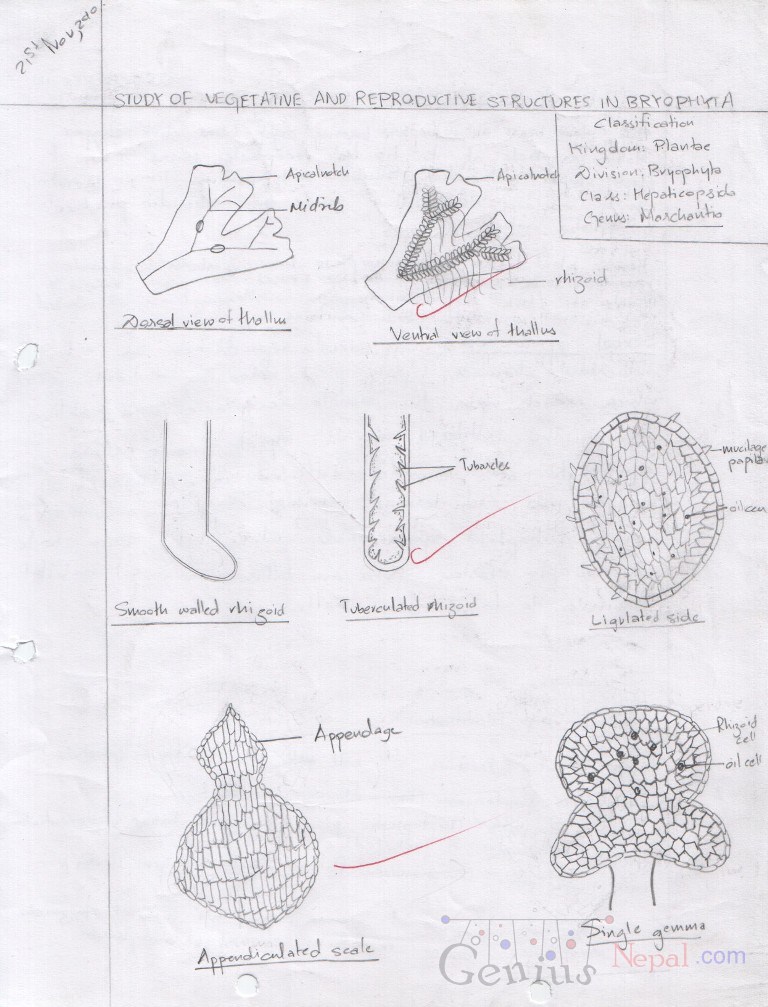 21st Nov,
STUDY OF VEGETATIVE AND REPRODUCTIVE STRUCTURES IN BRYOPHYTA
Classification
Kingdom: Plantae
Division: Bryophyta
Class: Hepaticopsida
Genus: Marchantia
Apicalnotch
Midrib
Dorsal view of thallus
Apicalnotch
rhizoid
Ventral view of thallus
Smooth walled rhizoid
Tubercles
Tuberculated rhizoid
mucilage
papilla
oil cell
Ligulated side
Appendage
Appendiculated scale
Rhizoid
cell
oil cell
Single gemma
Genius Nepal.com